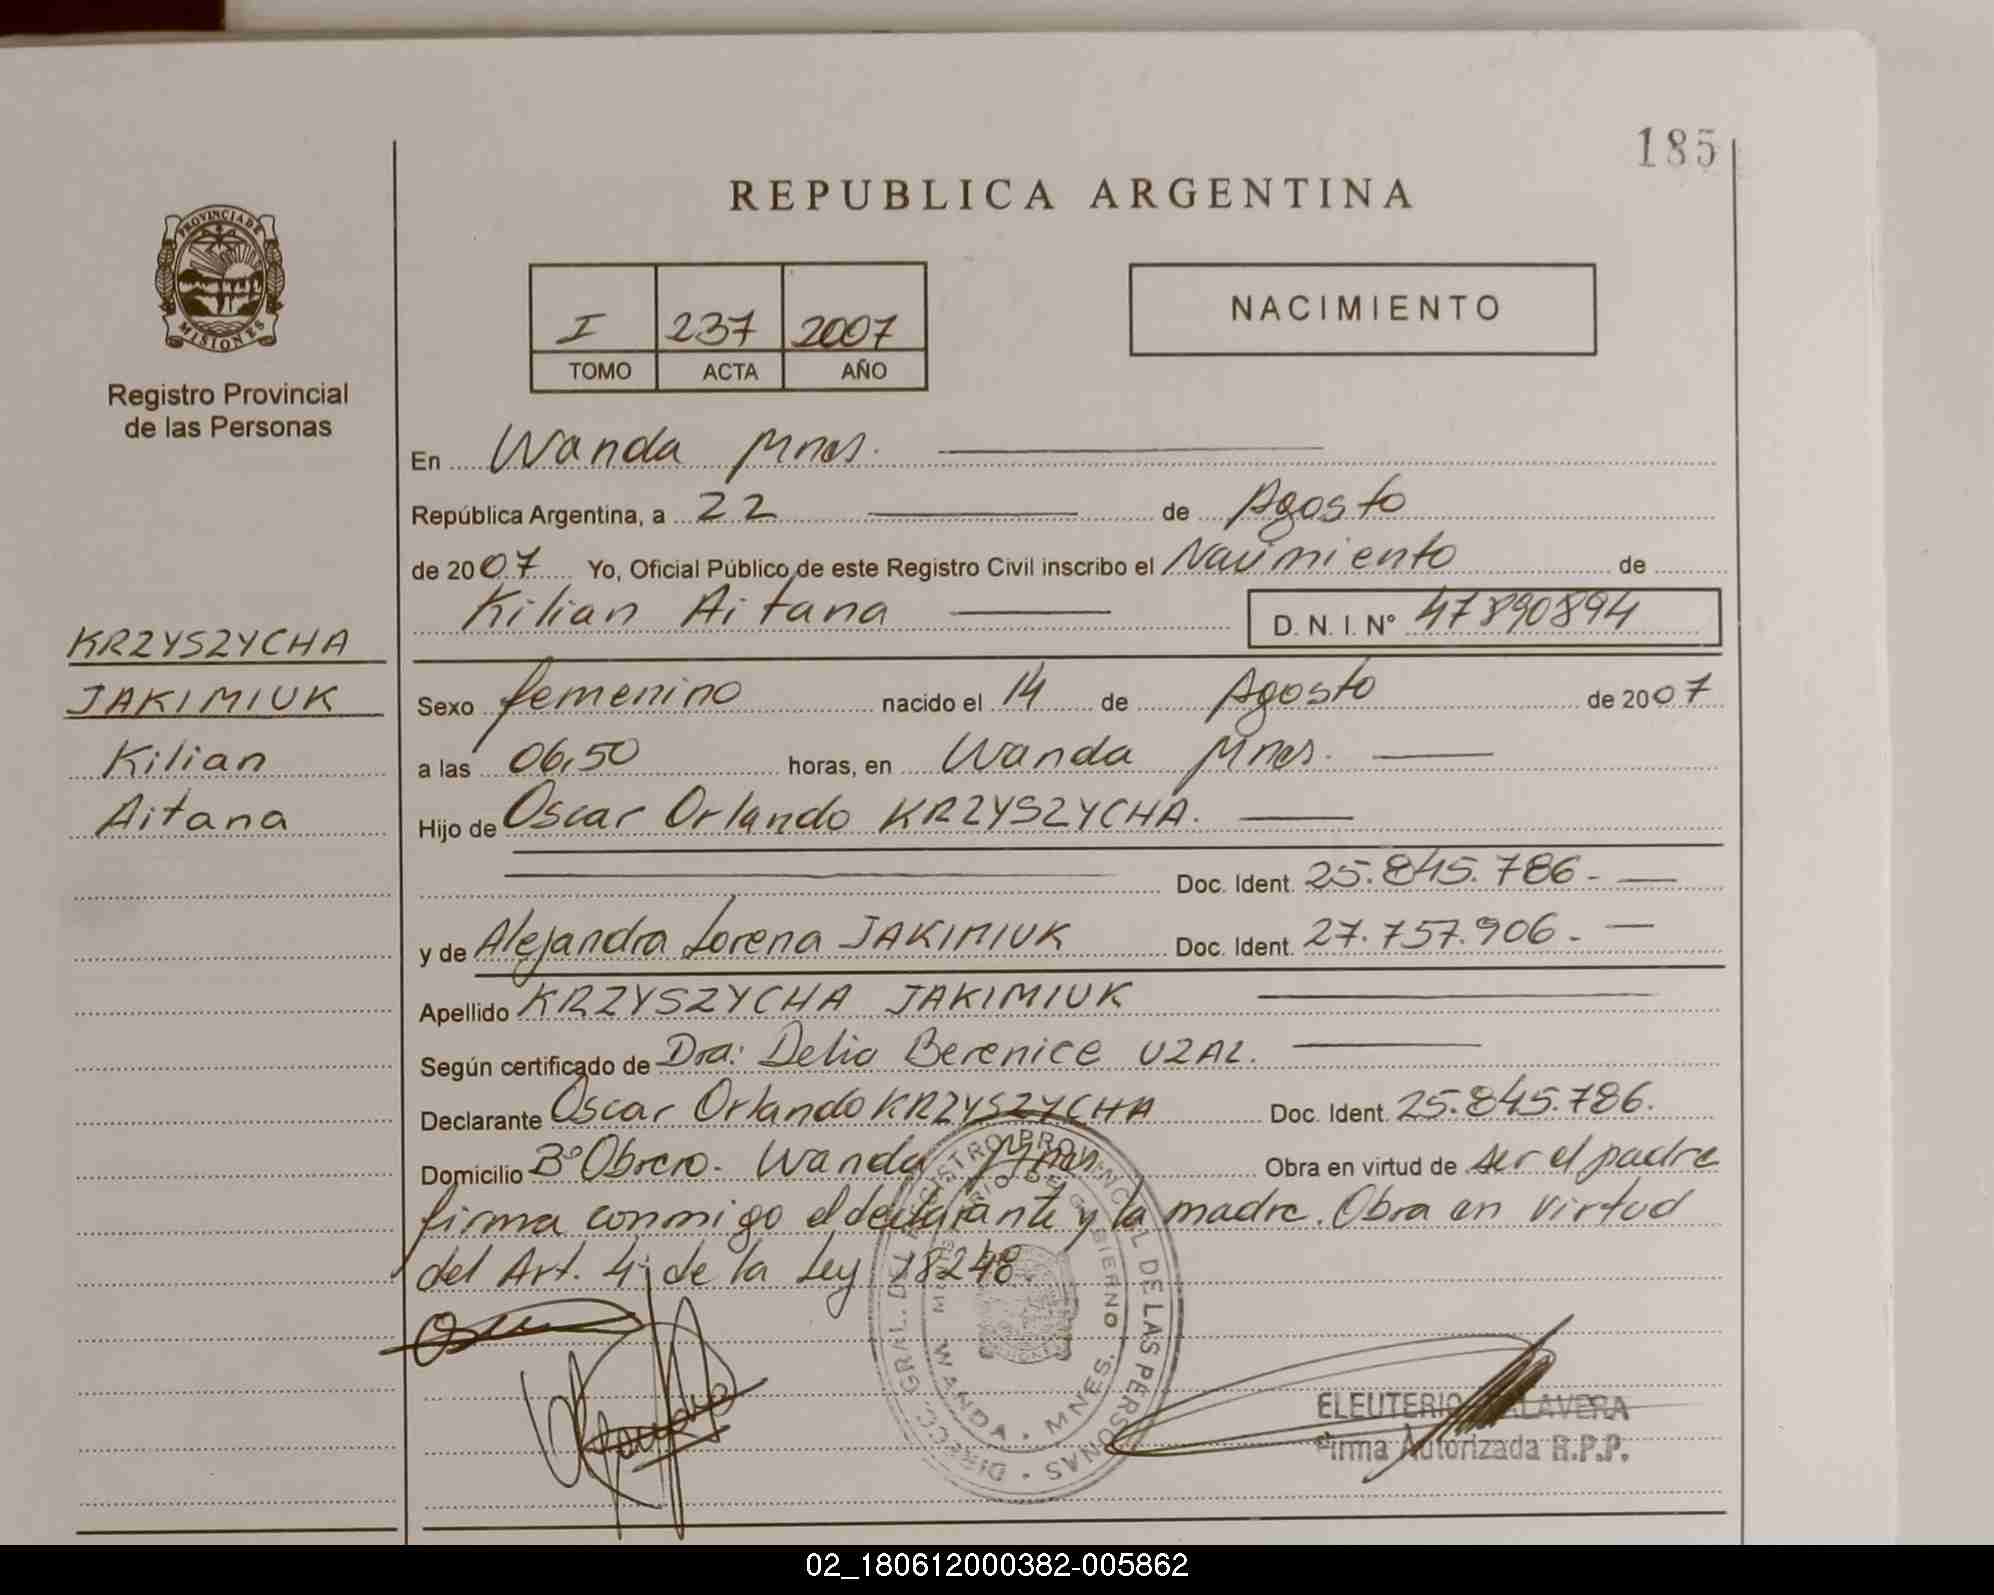 185
REPUBLICA ARGENTINA
PROVINCIA DE
MISIONES
Registro Provincial
de las Personas
I 237 2007
TOMO ACTA AÑO
NACIMIENTO
En Wanda Mnes.
República Argentina, a 22 de Agosto
de 2007 Yo, Oficial Público de este Registro Civil inscribo el Nacimiento de
Kilian Aitana D. N. I. Nº 47890894
KRZYSZYCHA
JAKIMIUK
Kilian
Aitana
Sexo femenino nacido el 14 de Agosto de 2007
a las 06,50 horas, en Wanda Mnes.
Hijo de Oscar Orlando KRZYSZYCHA.
Doc. Ident. 25.845.786-
y de Alejandra Lorena JAKIMIUK Doc. Ident. 27.757.906-
Apellido KRZYSZYCHA JAKIMIUK
Según certificado de Dra: Delia Berenice UZAL.
Declarante Oscar Orlando KRZYSZYCHA Doc. Ident. 25.845.786.
Domicilio Bº Obrero. Wanda Mnes. Obra en virtud de ser el padre
firma conmigo el declarante y la madre. Obra en virtud
del Art. 4 de la Ley 18248.
DIRECC. GRAL. DEL REGISTRO PROVINCIAL DE LAS PERSONAS
MINISTERIO DE GOBIERNO
WANDA - MNES.
ELEUTERIO
Firma Autorizada R.P.P.
02_180612000382-005862